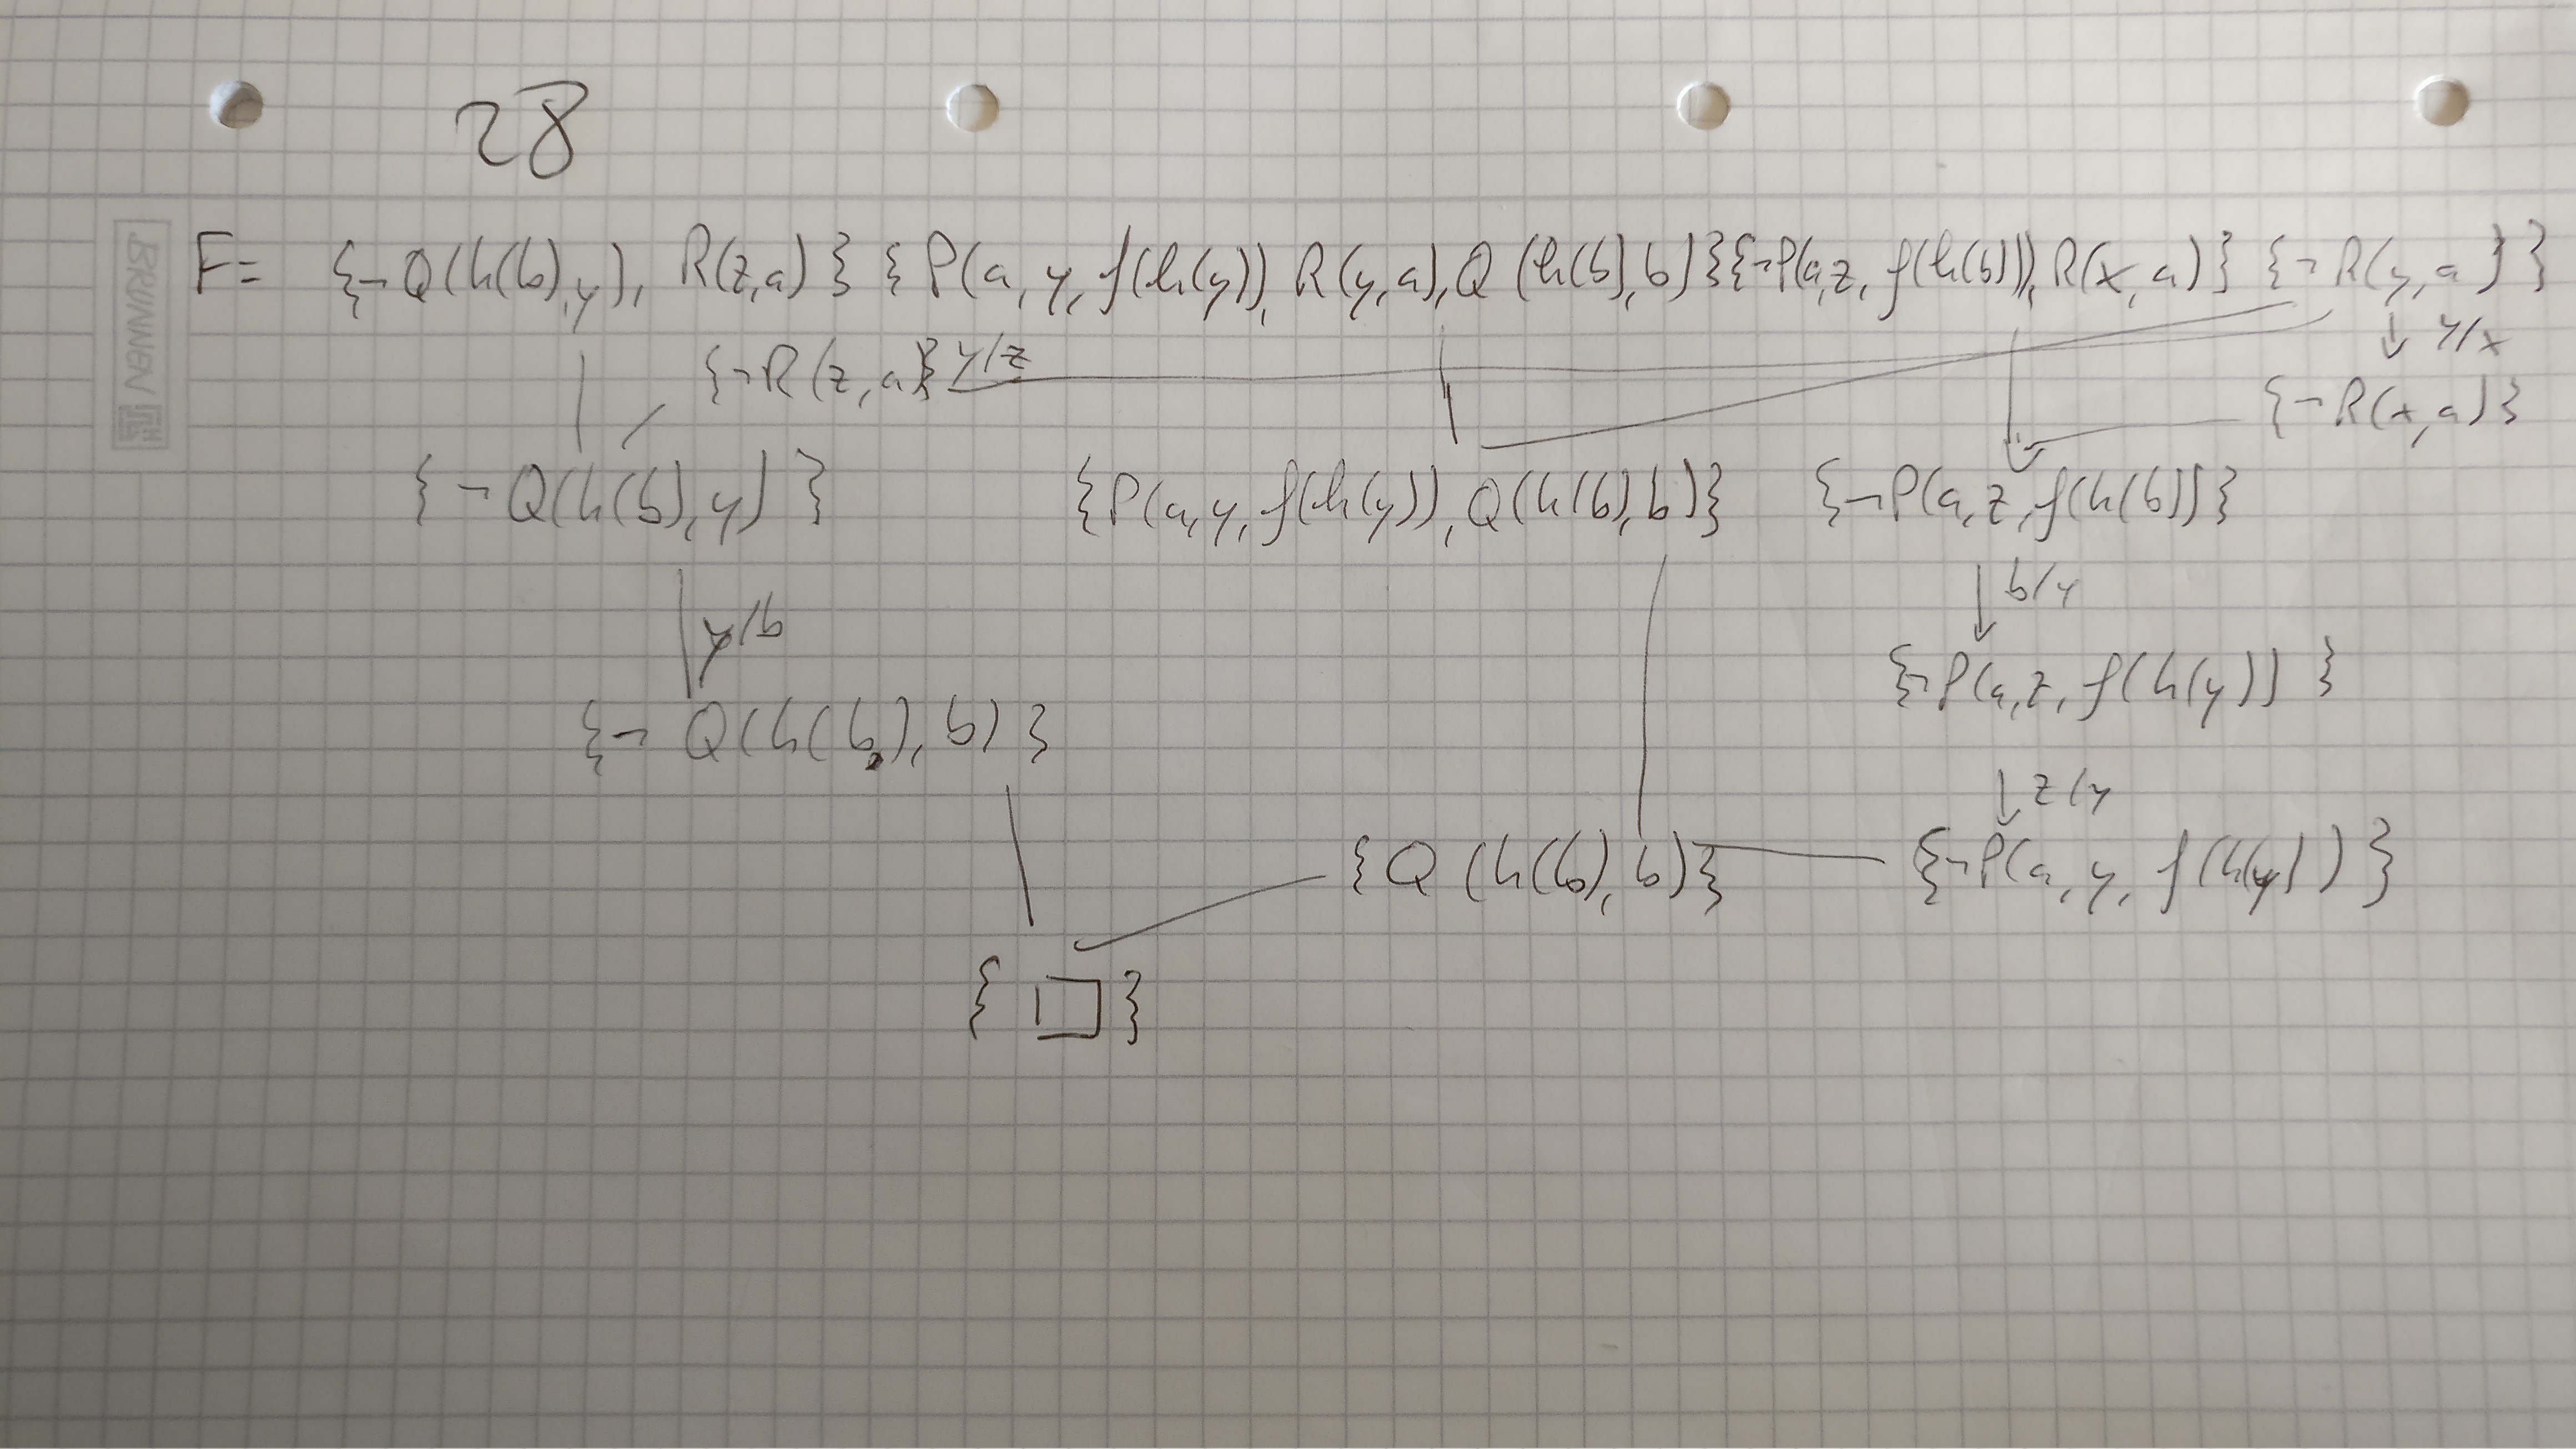 28
BRUNNEN
F= {¬Q(h(b),y), R(z,a)} {P(a,y,f(h(y)), R(y,a), Q(h(b),b)} {¬P(a,z,f(h(b))), R(x,a)} {¬R(y,a)}}
{¬R(z,a)} y/z
y/x
{¬R(x,a)}
{¬Q(h(b),y)} {P(a,y,f(h(y)),Q(h(b),b)} {¬P(a,z,f(h(b))}
y/b b/y
{¬P(a,z,f(h(y)) }
{¬ Q(h(b),b)}
z/y
{Q(h(b),b)} {¬P(a,y,f(h(y))}
{□}